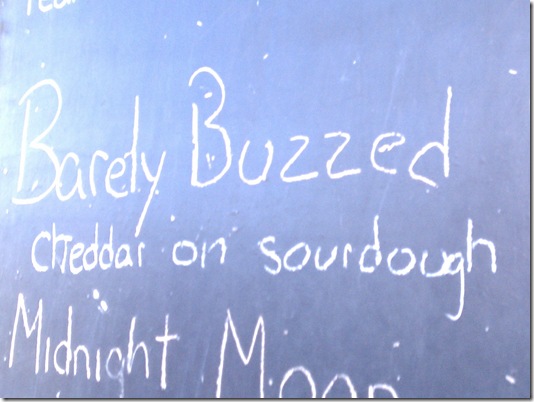 Barely Buzzed
cheddar on sourdough
Midnight Moon